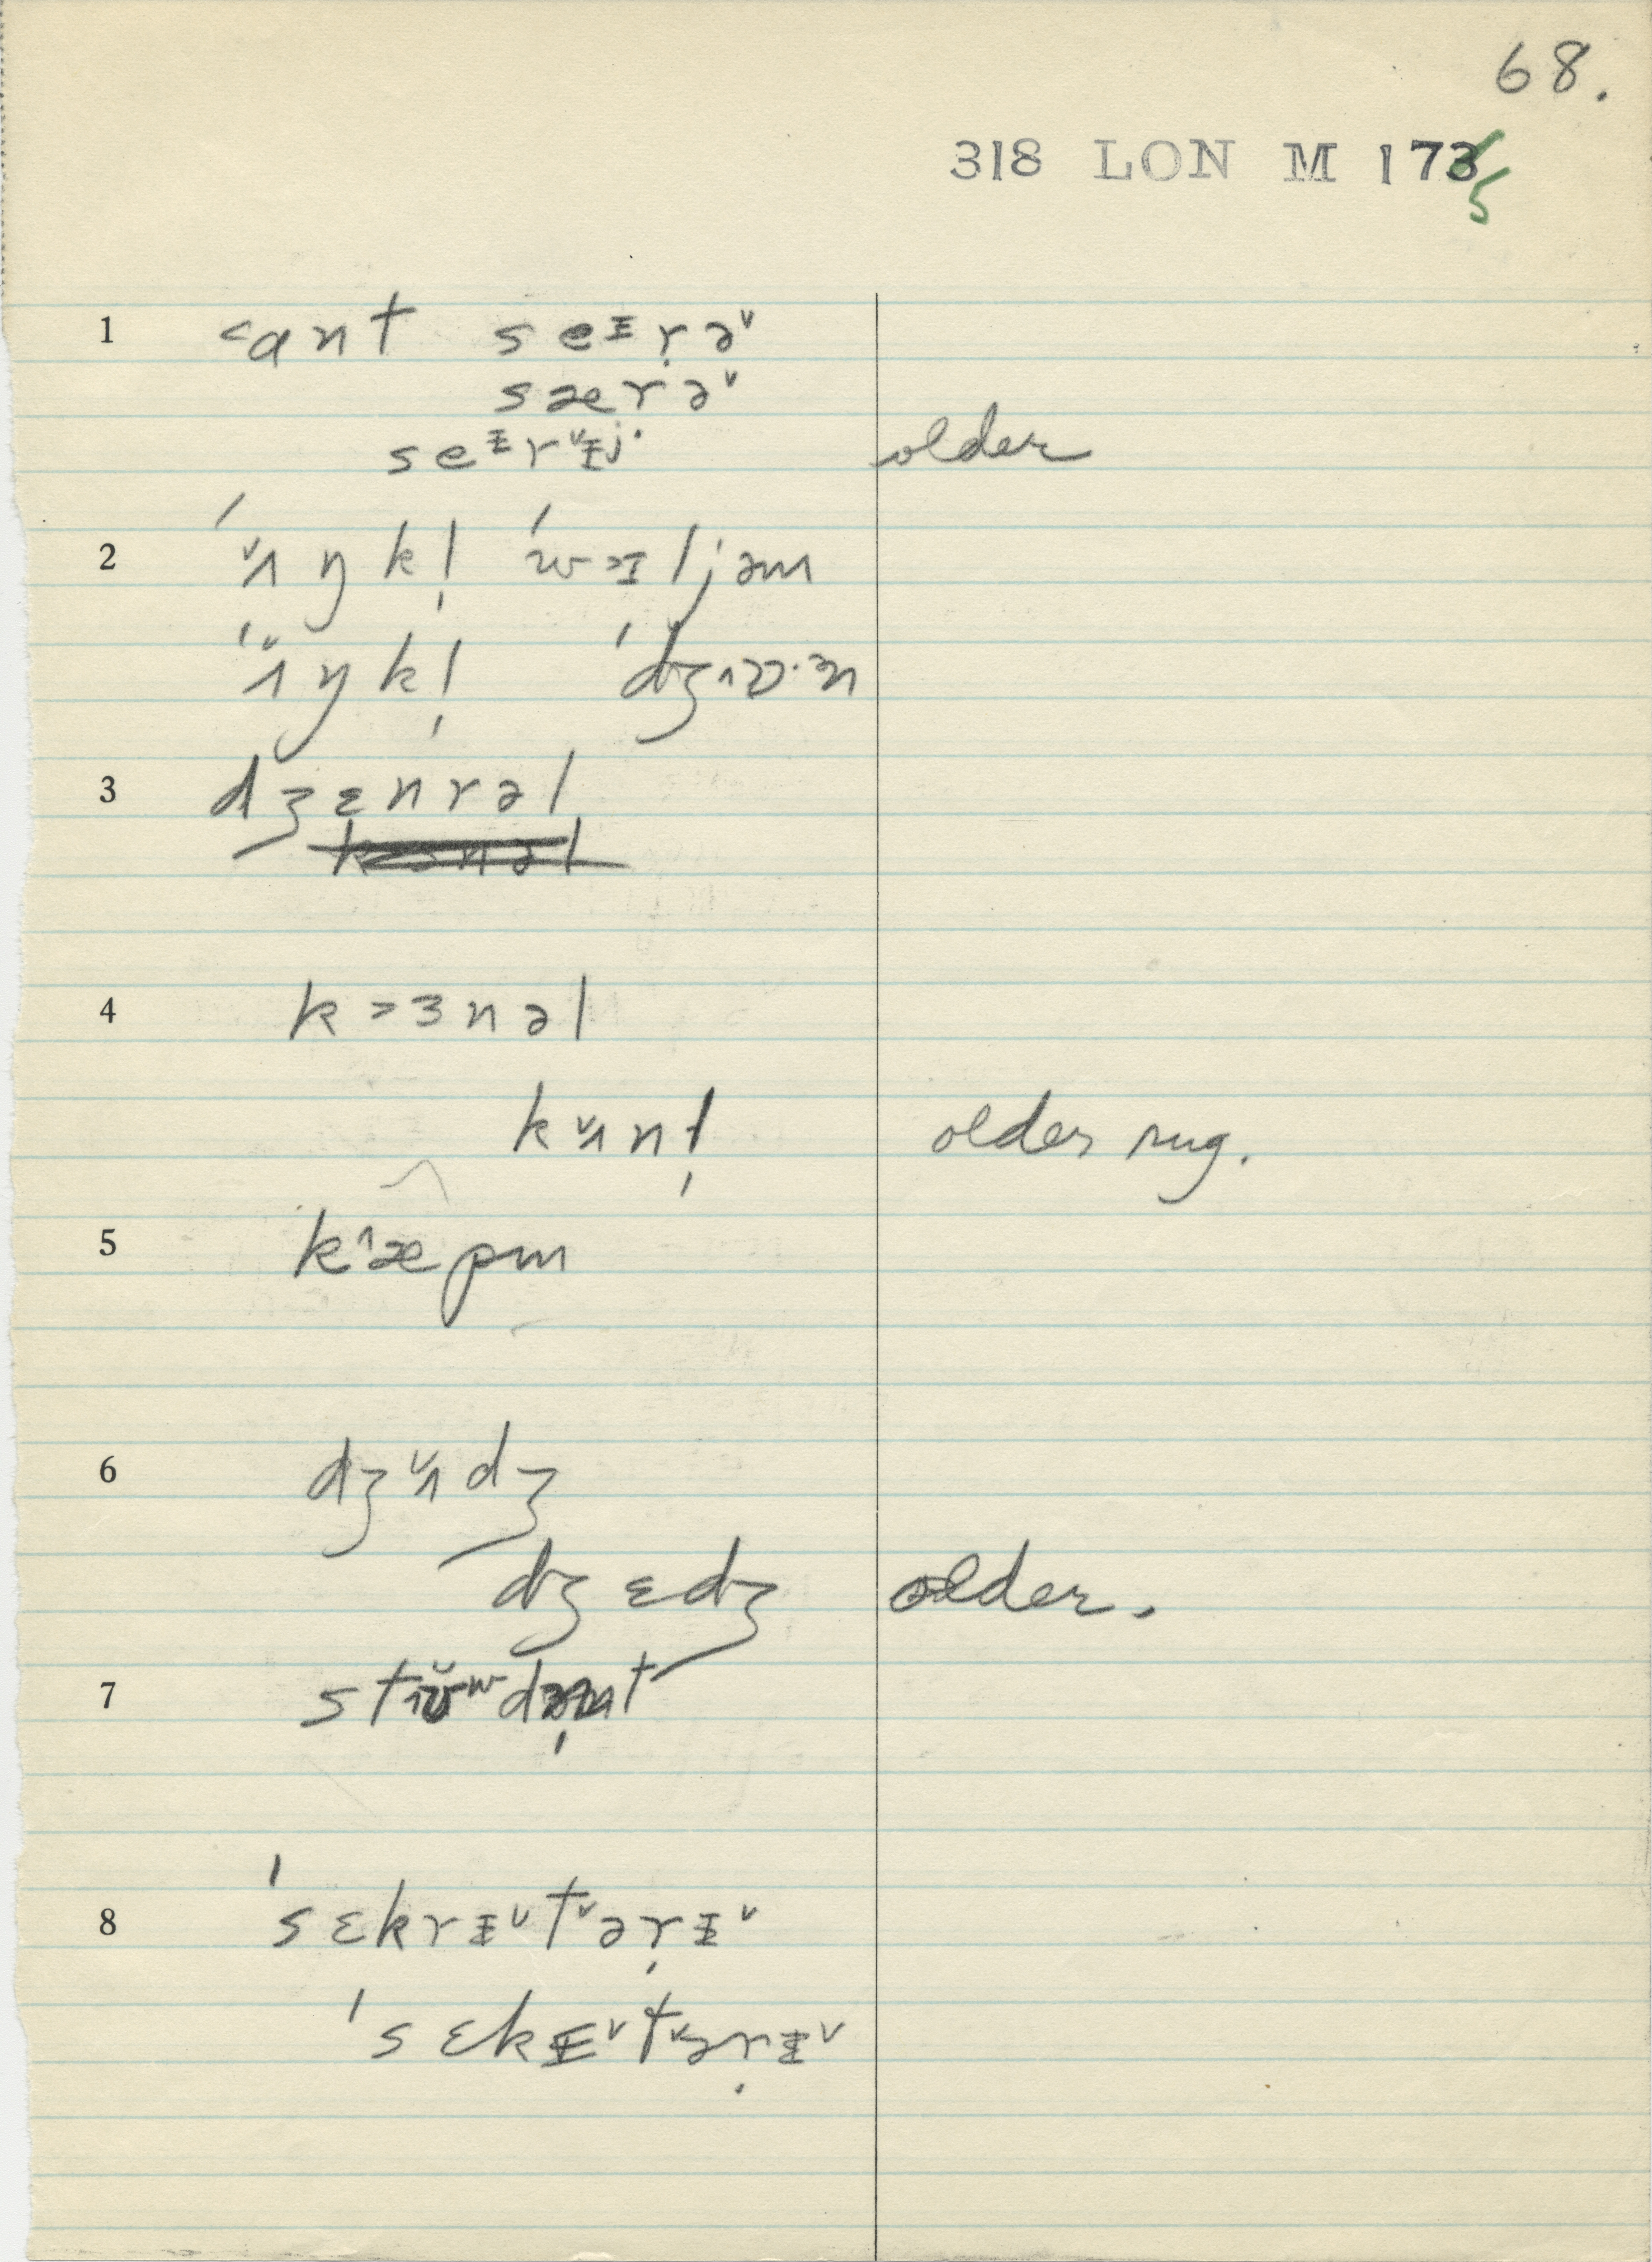 68.
318 LON M 1735
1 <ant seᵻr̩ə˅
særə˅
seᵻr˅ᵻj· older
2 ˈʌ̌ŋkl̩ ˈwɪljəm
ˈʌ̌ŋkl̩ ˈdʒɒ·n
3 dʒɛnrəl
4 k>ɜnəl
kʌ̌nl̩ older rug.
5 k^æpm
6 dʒʌ̌dʒ
dʒɛdʒ older.
7
8 ˈsɛkrᵻ˅t˅ər̩ᵻ˅
ˈsɛkᵻ˅t˅ər̩ᵻ˅